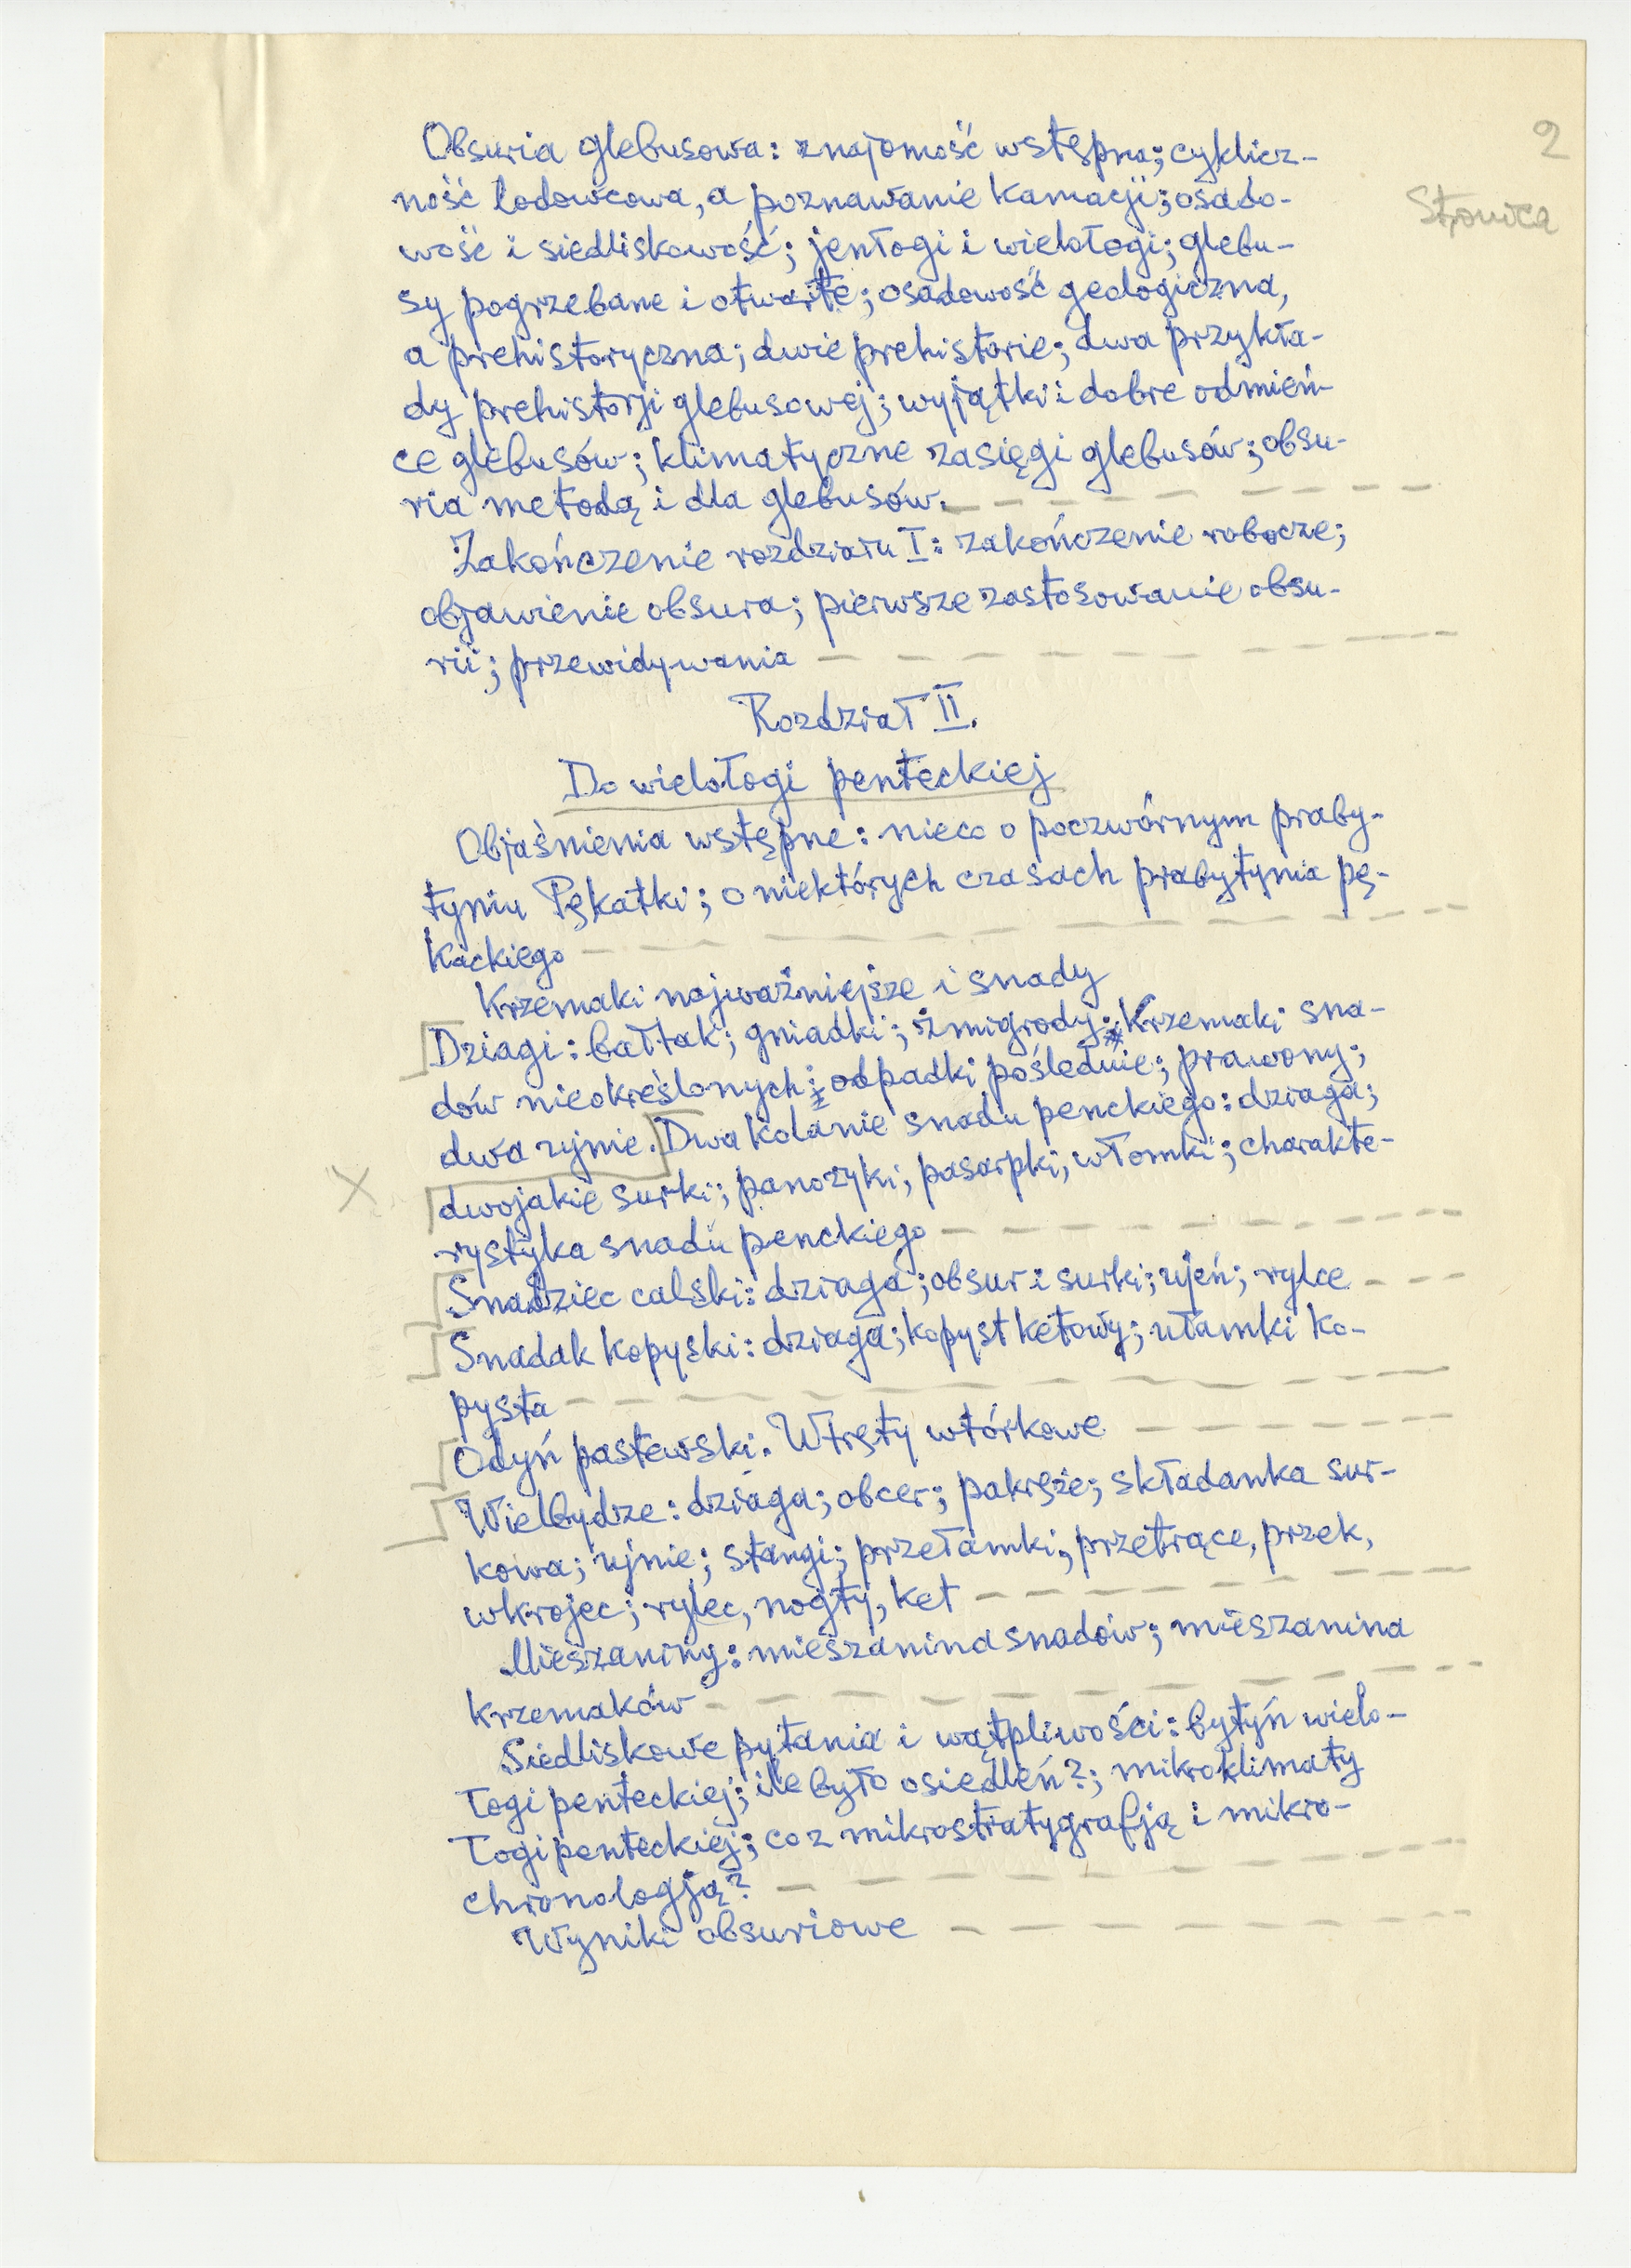 2
Stronica
Obsuria glebusowa: znajomość wstępna; cyklicz-
ność lodowcowa, a poznawanie kamacji; osado-
wość i siedliskowość; jenłogi i wielołogi; glebu-
sy pogrzebane i otwarte; osadowość geologiczna,
a prehistoryczna; dwie prehistorie; dwa przykła-
dy prehistorji glebusowej; wyjątki i dobre odmień-
ce glebusów; klimatyczne zasięgi glebusów; obsu-
ria metodą i dla glebusów.
Zakończenie rozdziału I: zakończenie robocze;
objawienie obsura; pierwsze zastosowanie obsu-
rii; przewidywania
Rozdział II.
Do wielołogi penteckiej
Objaśnienia wstępne: nieco o poczwórnym praby-
tyniu Pękatki; o niektórych czasach prabytynia pę-
kackiego
Krzemaki najważniejsze i snady
Dziagi: bałtak; gniadki; żmigrody; Krzemaki sna-
dów nieokreślonych: odpadki poślednie; prawony;
dwa ujnie. Dwa kolanie snadu penckiego: dziaga;
dwojakie surki; panozyki; pasarpki; włomki; charakte-
rystyka snadu penckiego
Snadziec calski: dziaga; obsur i surki; ujeń; rylce
Snadak kopyski: dziaga; kopyst ketowy; ułamki ko-
pysta
Odyń pastewski. Wtręty wtórkowe
Wielbydze: dziaga; obcer; pakręże; składanka sur-
kowa; ujnie; stangi; przełamki; przetrące, przek,
wkrojec; rylec, nogty, ket
Mieszaniny: mieszanina snadów; mieszanina
krzemaków
Siedliskowe pytania i wątpliwości: bytyń wielo-
łogi penteckiej; ile było osiedleń?; mikroklimaty
łogi penteckiej; co z mikrostratygrafją i mikro-
chronologją?
Wyniki obsuriowe